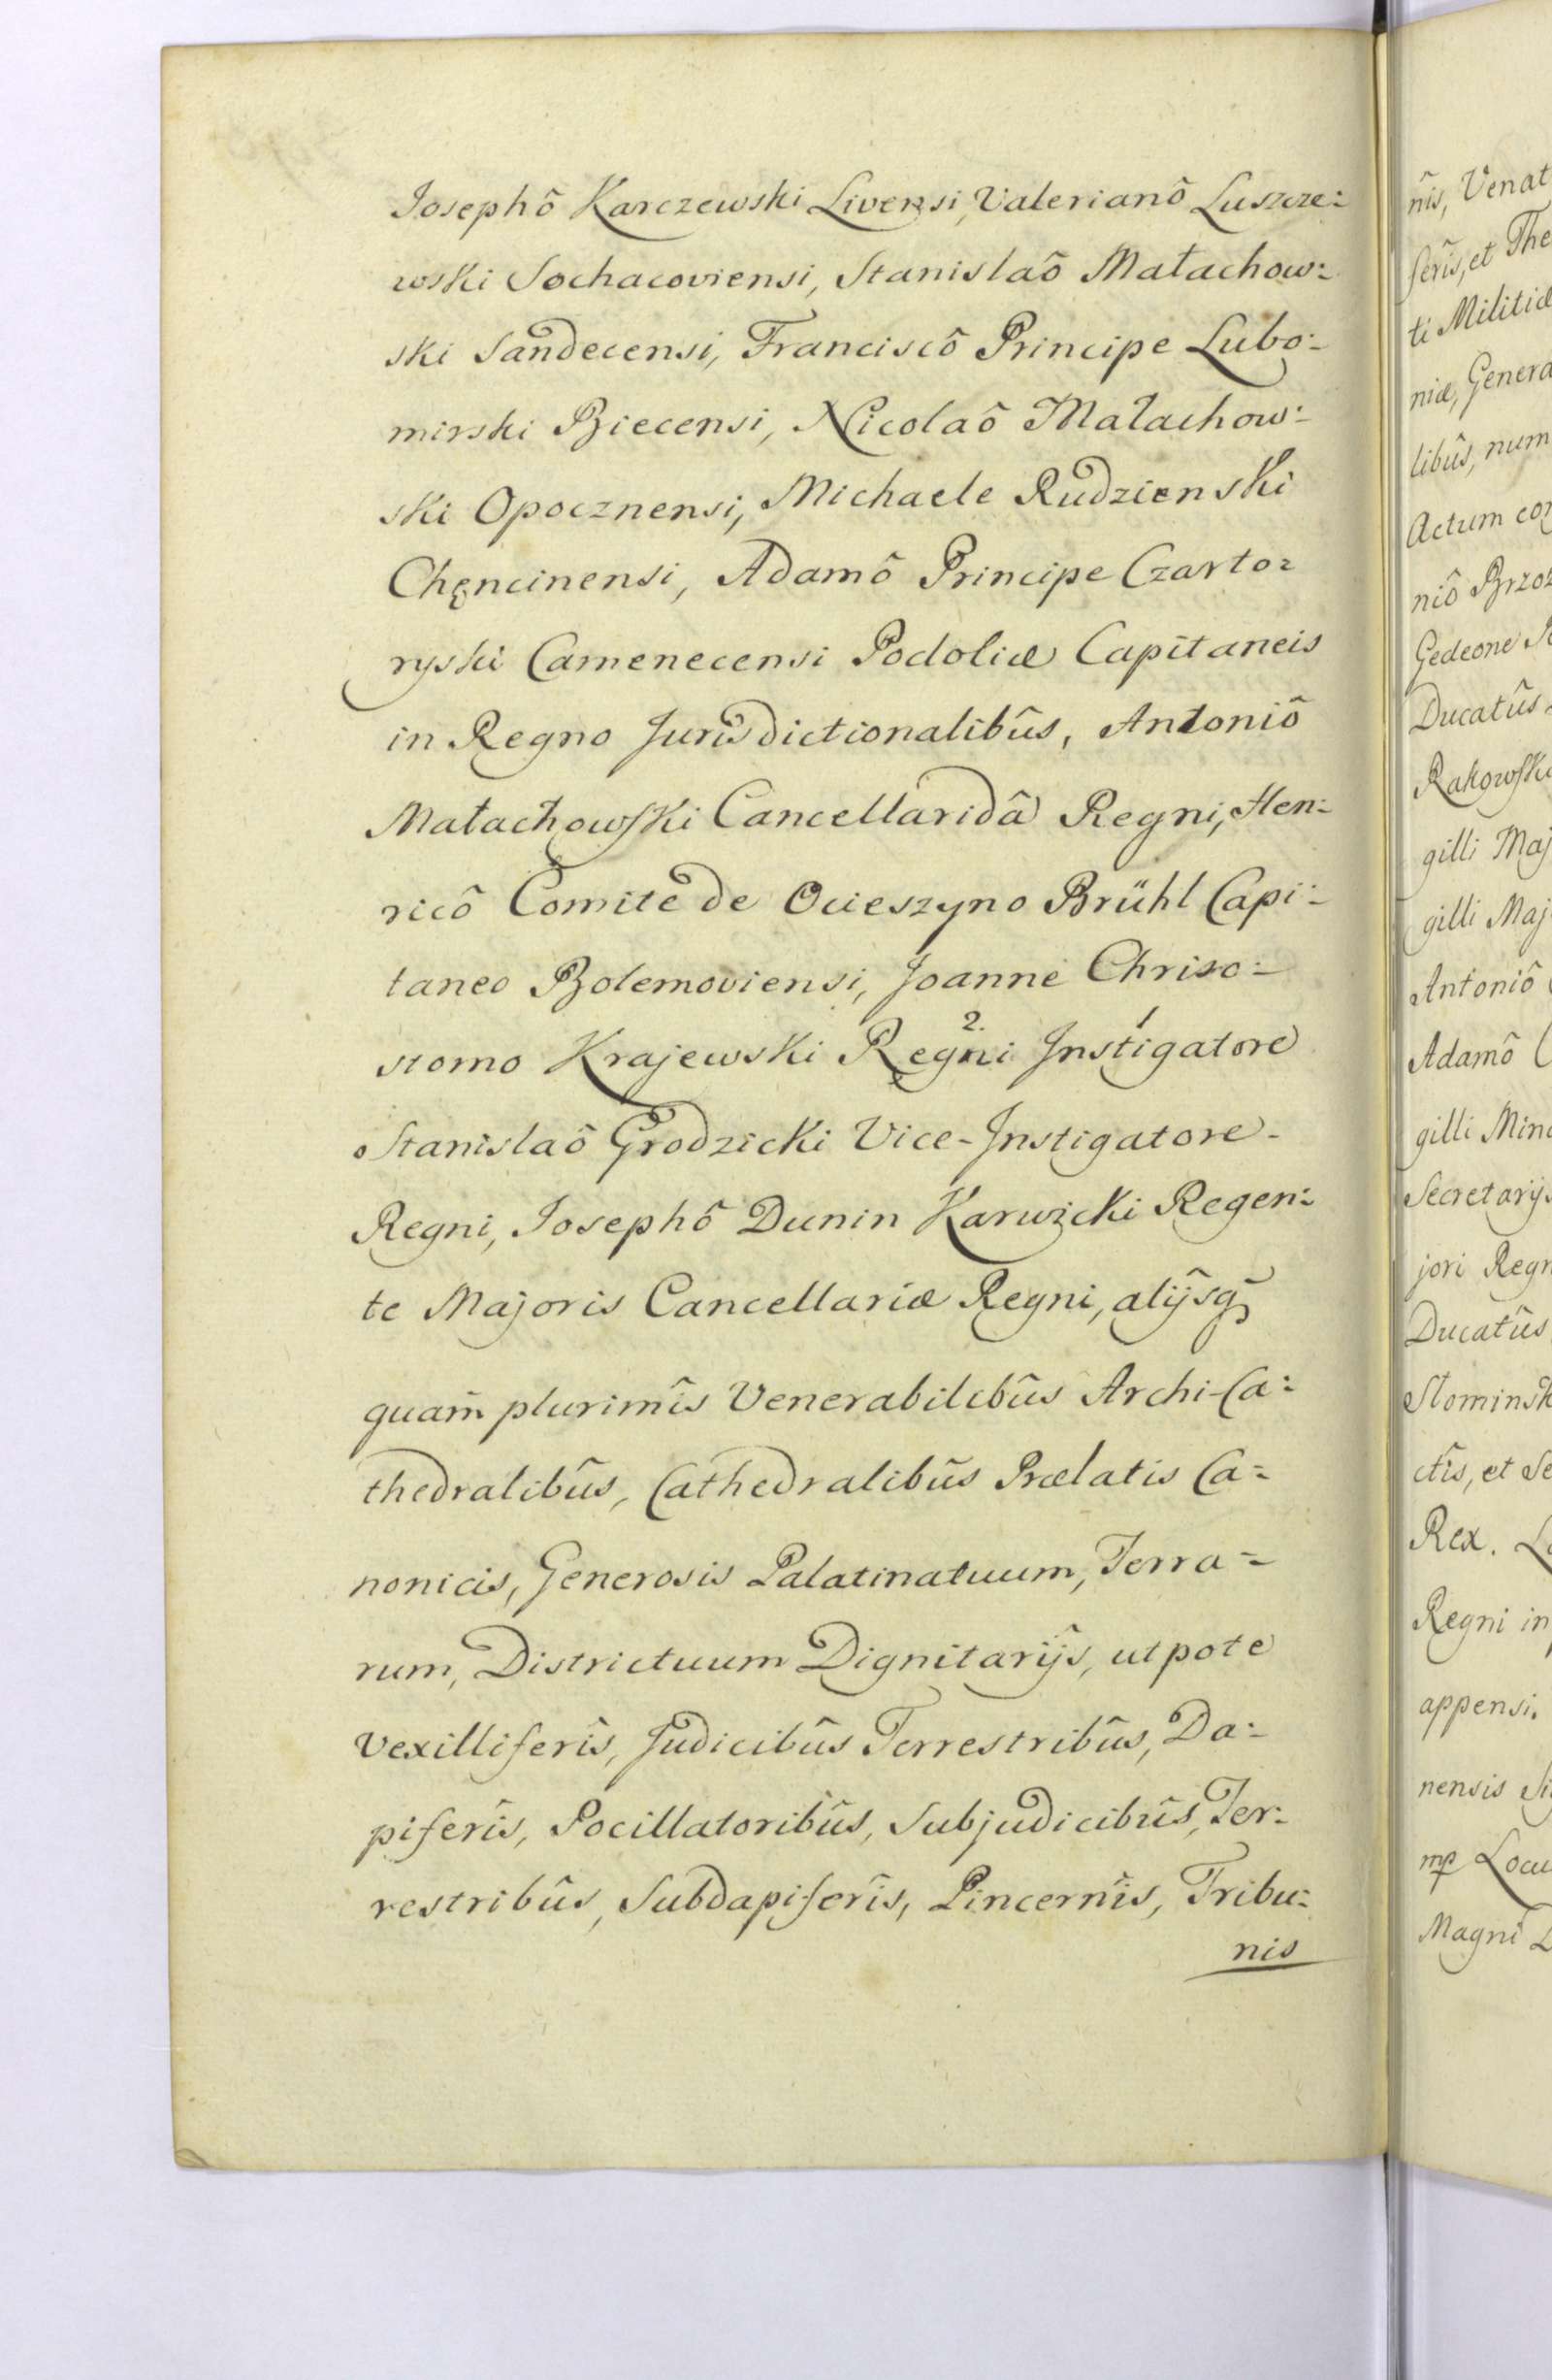 Josephô Karczewski Livensi, Valerianô Luszcze:
wski Sochacoviensi, Stanislaô Małachow:
ski Sandecensi, Franciscô Principe Lubo:
mirski Biecensi, Nicolaô Małachow:
ski Opocznensi, Michaele Rudzienski
Chęncinensi, Adamô Principe Czarto=
ryski Camenecensi Podoliæ Capitaneis
in Regno Jurisdictionalibûs, Antoniô
Małachowski Cancellaridâ Regni, Hen:
ricô Comite de Ocieszyno Brühl Capi:
taneo Bolemoviensi, Joanne Chriso=
2. 1
stomo Krajewski Regni Instigatore
Stanislaô Grodzicki Vice-Instigatore
Regni, Josephô Dunin Karwicki Regen:
te Majoris Cancellariæ Regni, alijsq̃
quam plurimîs Venerabilibûs Archi-Ca:
thedralibûs, Cathedralibûs Prælatis Ca=
nonicis, Generosis Palatinatuum, Terra=
rum, Districtuum Dignitarijs, utpote
Vexilliferîs, Judicibûs Terrestribûs, Da:
piferîs, Pocillatoribûs, Subjudicibûs, Ter:
restribûs, Subdapiferîs, Pincernîs, Tribu:
nis
nîs, Venat
ferîs, et The
ti Militiæ
niæ, Genera
libûs, num
Actum con
niô Brzoz
Gedeone
Ducatûs
Rakowski
gilli Maj
gilli Maj
Antoniô
Adamô
gilli Mino
Secretarijs
jori Regn
Ducatûs
Słominsk
ctîs, et Se
Rex.
Regni in
appensi.
nensis Si
mp Locu
Magni D